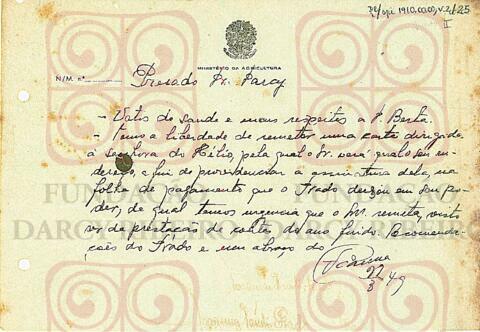 DR/spi 1910.00.00, v.2 f.25
II
MINISTÉRIO DA AGRICULTURA
N/M. nº
Presado Dr. Darcy
- Votos de saude e meus respeitos a D. Berta.
- Tomo a liberdade de remeter uma carta dirigida
á senhora do Hélio, pela qual o Sr. verá qual o seu en-
dereço, a fim de providenciar a assinatura dela, na
folha de pagamento que o Prado deixou em seu po-
der, da qual temos urgencia que o Sr. remeta, visto
ser da prestação de contas do ano findo. Recomenda-
ções do Prado e um abraço do
22
3 49
FUNDAÇÃO
DARCY RIBEIRO